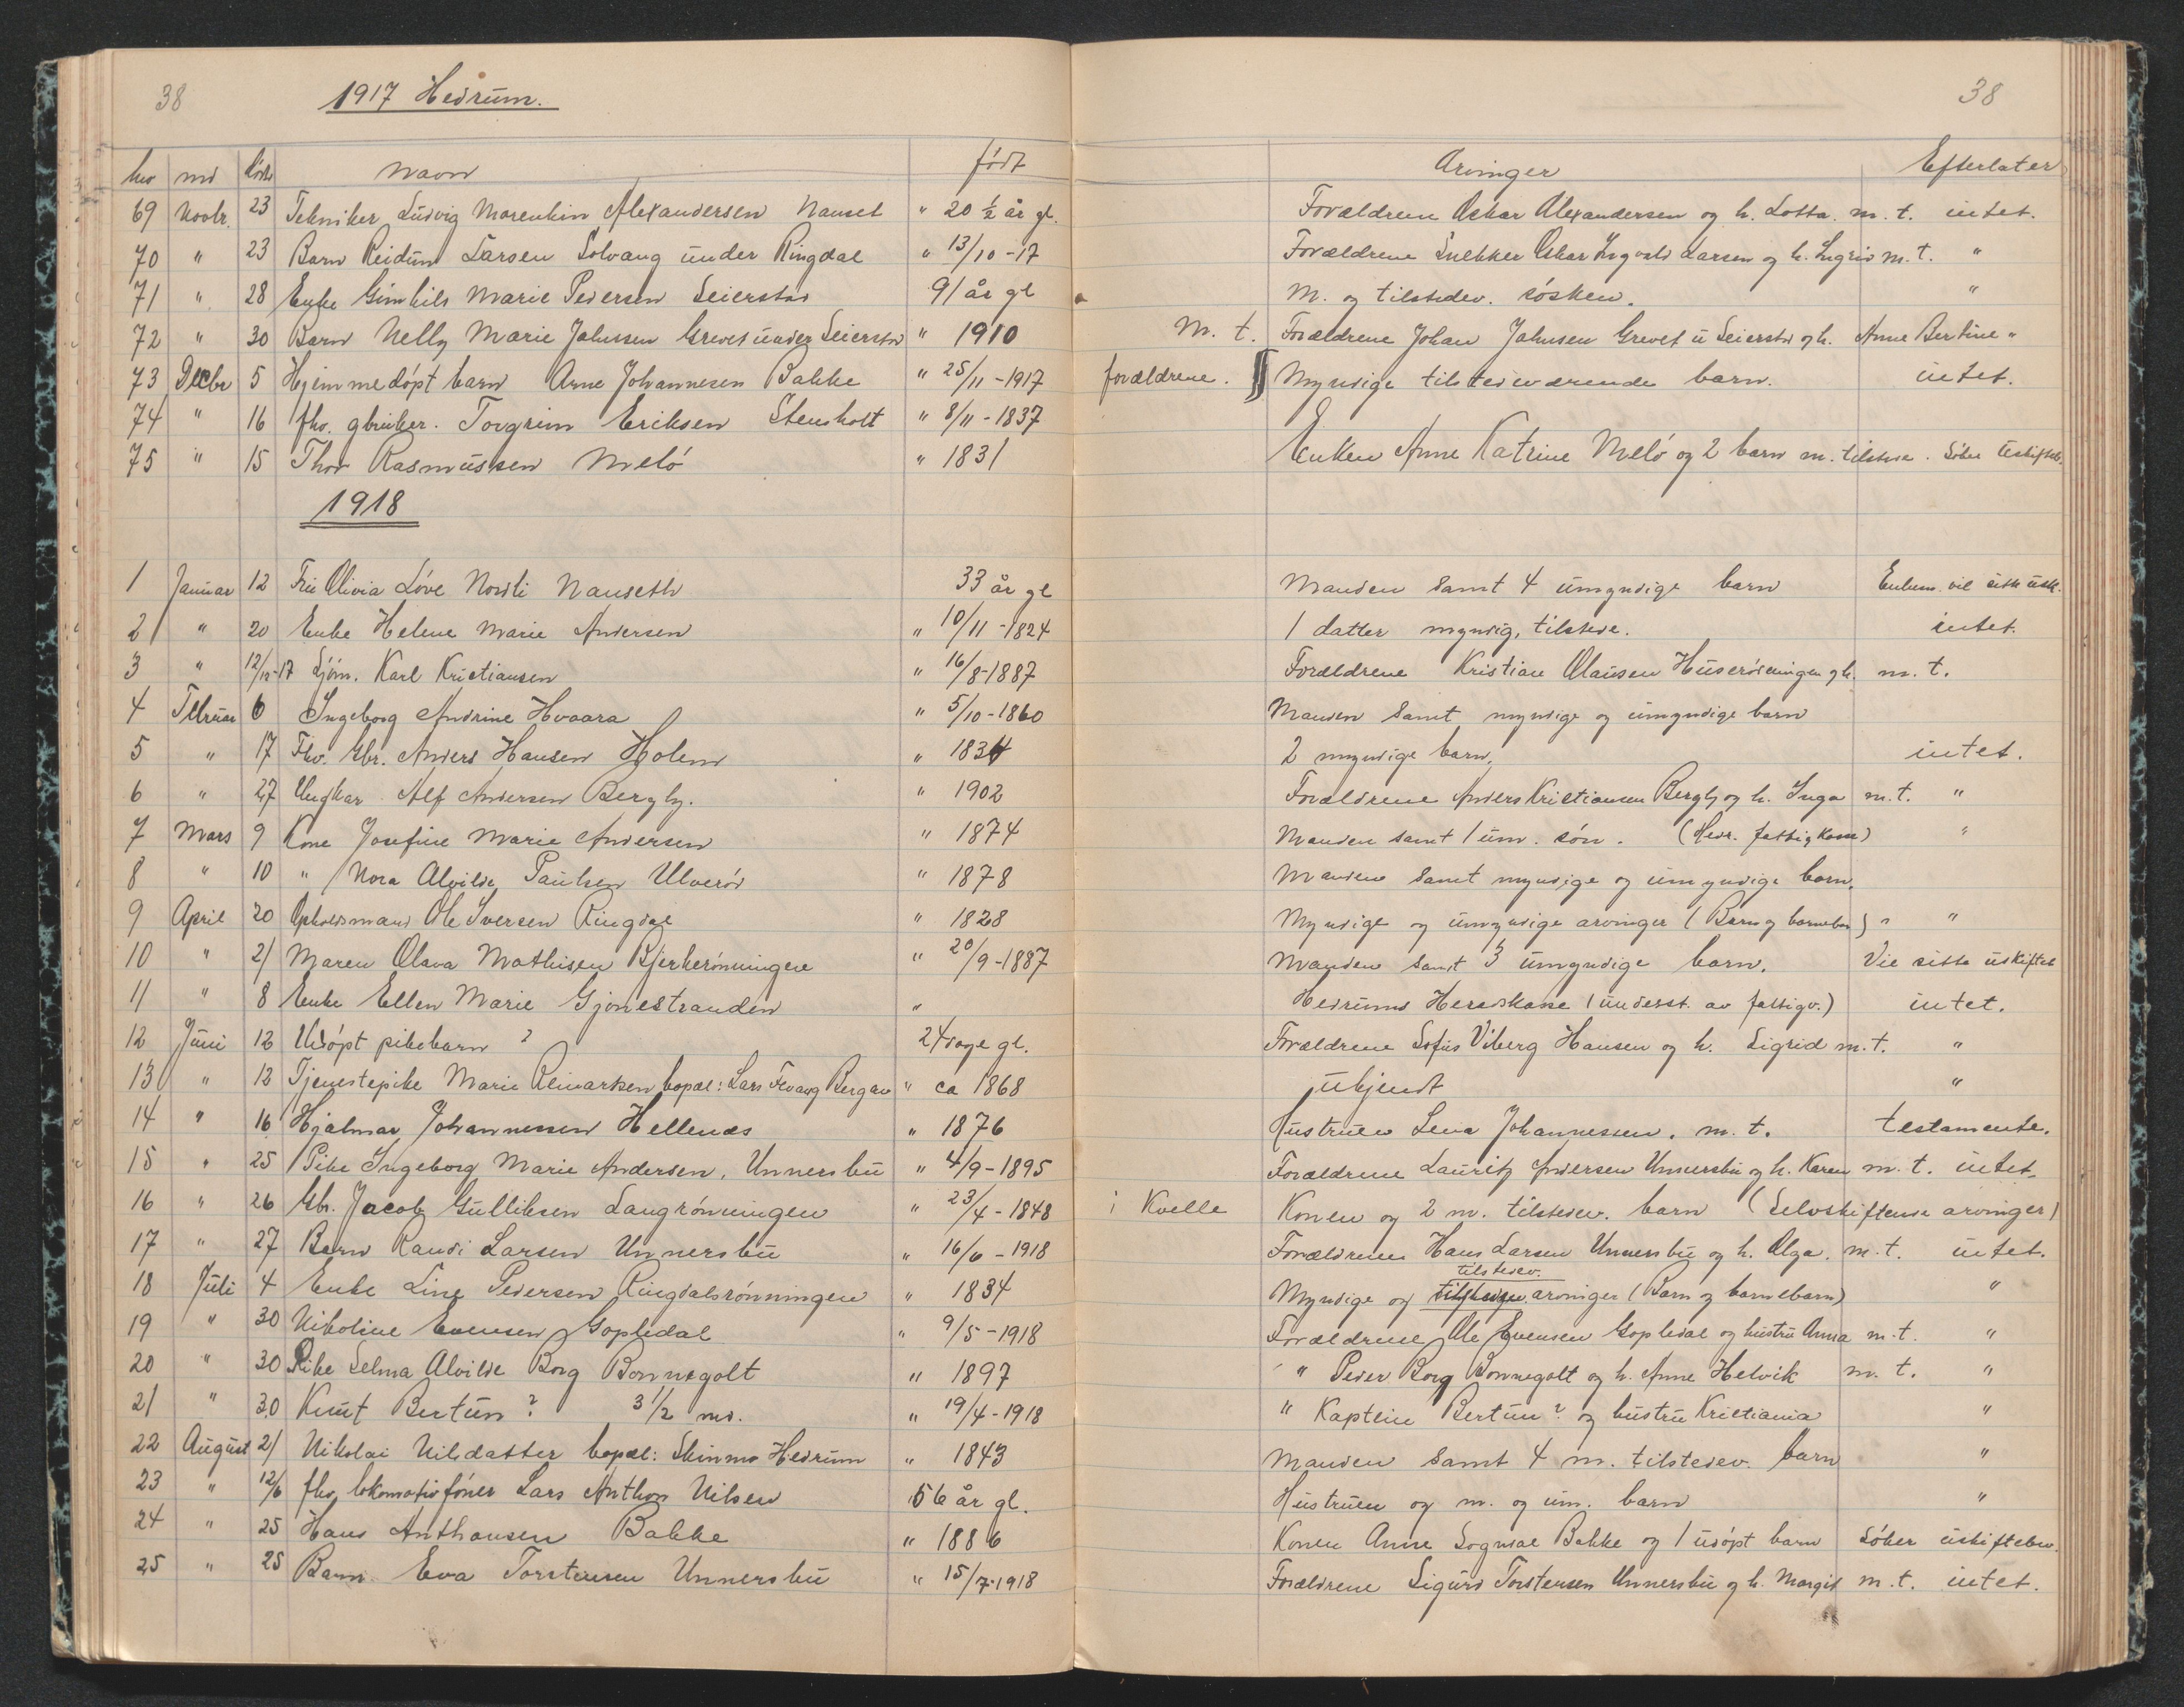 38 1917 Hedrum. 38
No md død navn født Arvinger Efterlater
69 Novbr. 23 Tekniker Ludvig Marenkin Alexandersen Nanset " 20 ½ år gl. Forældrene Oskar Alexandersen og h. Lotta. m. t. intet.
70 " 23 Barn Reidun Larsen Solvang under Ringdal " 13/10-17 Forældrene Snekker Oskar Ingvald Larsen og h. Ingrid m. t. "
71 " 28 Enke Gunhild Marie Pedersen Seierstad 91 år gl M. og tilstedev. søsken. "
72 " 30 Barn Nelly Marie Johnsen Grevet under Seierstad " 1910 m. t. Forældrene Johan Johnsen Grevet u Seierstd og h. Anne Bertine "
73 Decbr 5 Hjemmedøpt barn Arne Johannesen Bakke " 25/11-1917 forældrene. Myndige tilstedeværende barn. intet.
74 " 16 fhv. gbruker. Torgrim Eriksen Stensholt " 8/11-1837
75 " 15 Thor Rasmussen Melø " 1831 Enken Anne Katrine Melø og 2 barn m. tilstede. Søker uskifteb.
1918
1 Januar 12 Fru Olivia Løve Nordli Nanseth 33 år gl Manden samt 4 umyndige barn Enkem. vil sitte usk.
2 " 20 Enke Helene Marie Andersen " 10/11-1824 1 datter myndig, tilstede. intet.
3 " 12/12-17 Sjøm. Karl Kristiansen " 16/8-1887 Forældrene Kristian Olausen Huserødningen og h. m. t.
4 Februar 6 Ingeborg Andrine Hvaara " 5/10-1860 Manden samt myndige og umyndige barn
5 " 17 Fhv. Gbr. Anders Hansen Holem " 1834 2 myndige barn. intet.
6 " 27 Ungkar Alf Andersen Bergly. " 1902 Forældrene Anders Kristiansen Bergly og h. Inga m. t. "
7 Mars 9 Kone Josefine Marie Andersen " 1874 Manden samt 1 um. søn. (Hedr. fattigkasse) "
8 " 10 " Nora Alvilde Paulsen Ulverød " 1878 Manden samt myndige og umyndige barn.
9 April 20 Opholdsmand Ole Iversen Ringdal " 1828 Myndige og umyndige arvinger (Barn og barnebarn) " "
10 " 21 Maren Olava Mathisen Bjerkerønningen " 20/9-1887 Manden samt 3 umyndige barn. Vil sitte uskiftet
11 " 8 Enke Ellen Marie Gjonestranden " Hedrums Heredskasse (underst. av fattigv.) intet.
12 Juni 12 Udøpt pikebarn ? 24 dage gl. Forældrene Sofus Viberg Hansen og h. Sigrid m. t. "
13 " 12 Tjenestepike Marie Reinartsen bopæl: Lars Fevang Bergan " ca 1868 ukjendt "
14 " 16 Hjalmar Johannessen Hellenes " 1876 Hustruen Lena Johannessen. m. t. testamente.
15 " 25 Pike Ingeborg Marie Andersen, Unnersbu " 4/9-1895 Forældrene Lauritz Andersen Unnersbu og h. Karen m. t. intet.
16 " 26 Gbr. Jacob Gulliksen Langrønningen " 23/4-1848 i Kvelle Konen og 2 m. tilstedev. barn (Selvskiftende arvinger)
17 " 27 Barn Randi Larsen Unnersbu " 16/6-1918 Forældrene Hans Larsen Unnersbu og h. Olga. m. t. intet.
18 Juli 4 Enke Line Pedersen Ringdalsrønningen " 1834 Myndige og tilstedev. arvinger (Barn og barnebarn) "
19 " 30 Nikoline Evensen Gopledal " 9/5-1918 Forældrene Ole Evensen Gopledal og hustru Anna m. t. "
20 " 30 Pike Selma Alvilde Borg Bonnegolt " 1897 " Peder Borg Bonnegolt og h. Anne Helvik m. t. "
21 " 30 Knut Bertun ? 3 1/2 md. " 19/4-1918 " Kaptein Bertun ? og hustru Kristiania "
22 August 21 Nikolai Nilsdatter bopæl: Skinmo Hedrum " 1843 Manden samt 4 m. tilstedev. barn "
23 " 12/6 fhv. lokomotivfører Lars Anthon Nilsen 56 år gl. Hustruen og m. og um. barn "
24 " 25 Hans Anthonsen Bakke " 1886 Konen Anne Sogndal Bakke og 1 udøpt barn søker uskiftebev.
25 " 25 Barn Eva Torstensen Unnersbu " 15/7-1918 Forældrene Sigurd Torstensen Unnersbu og h. Margit m. t. intet.